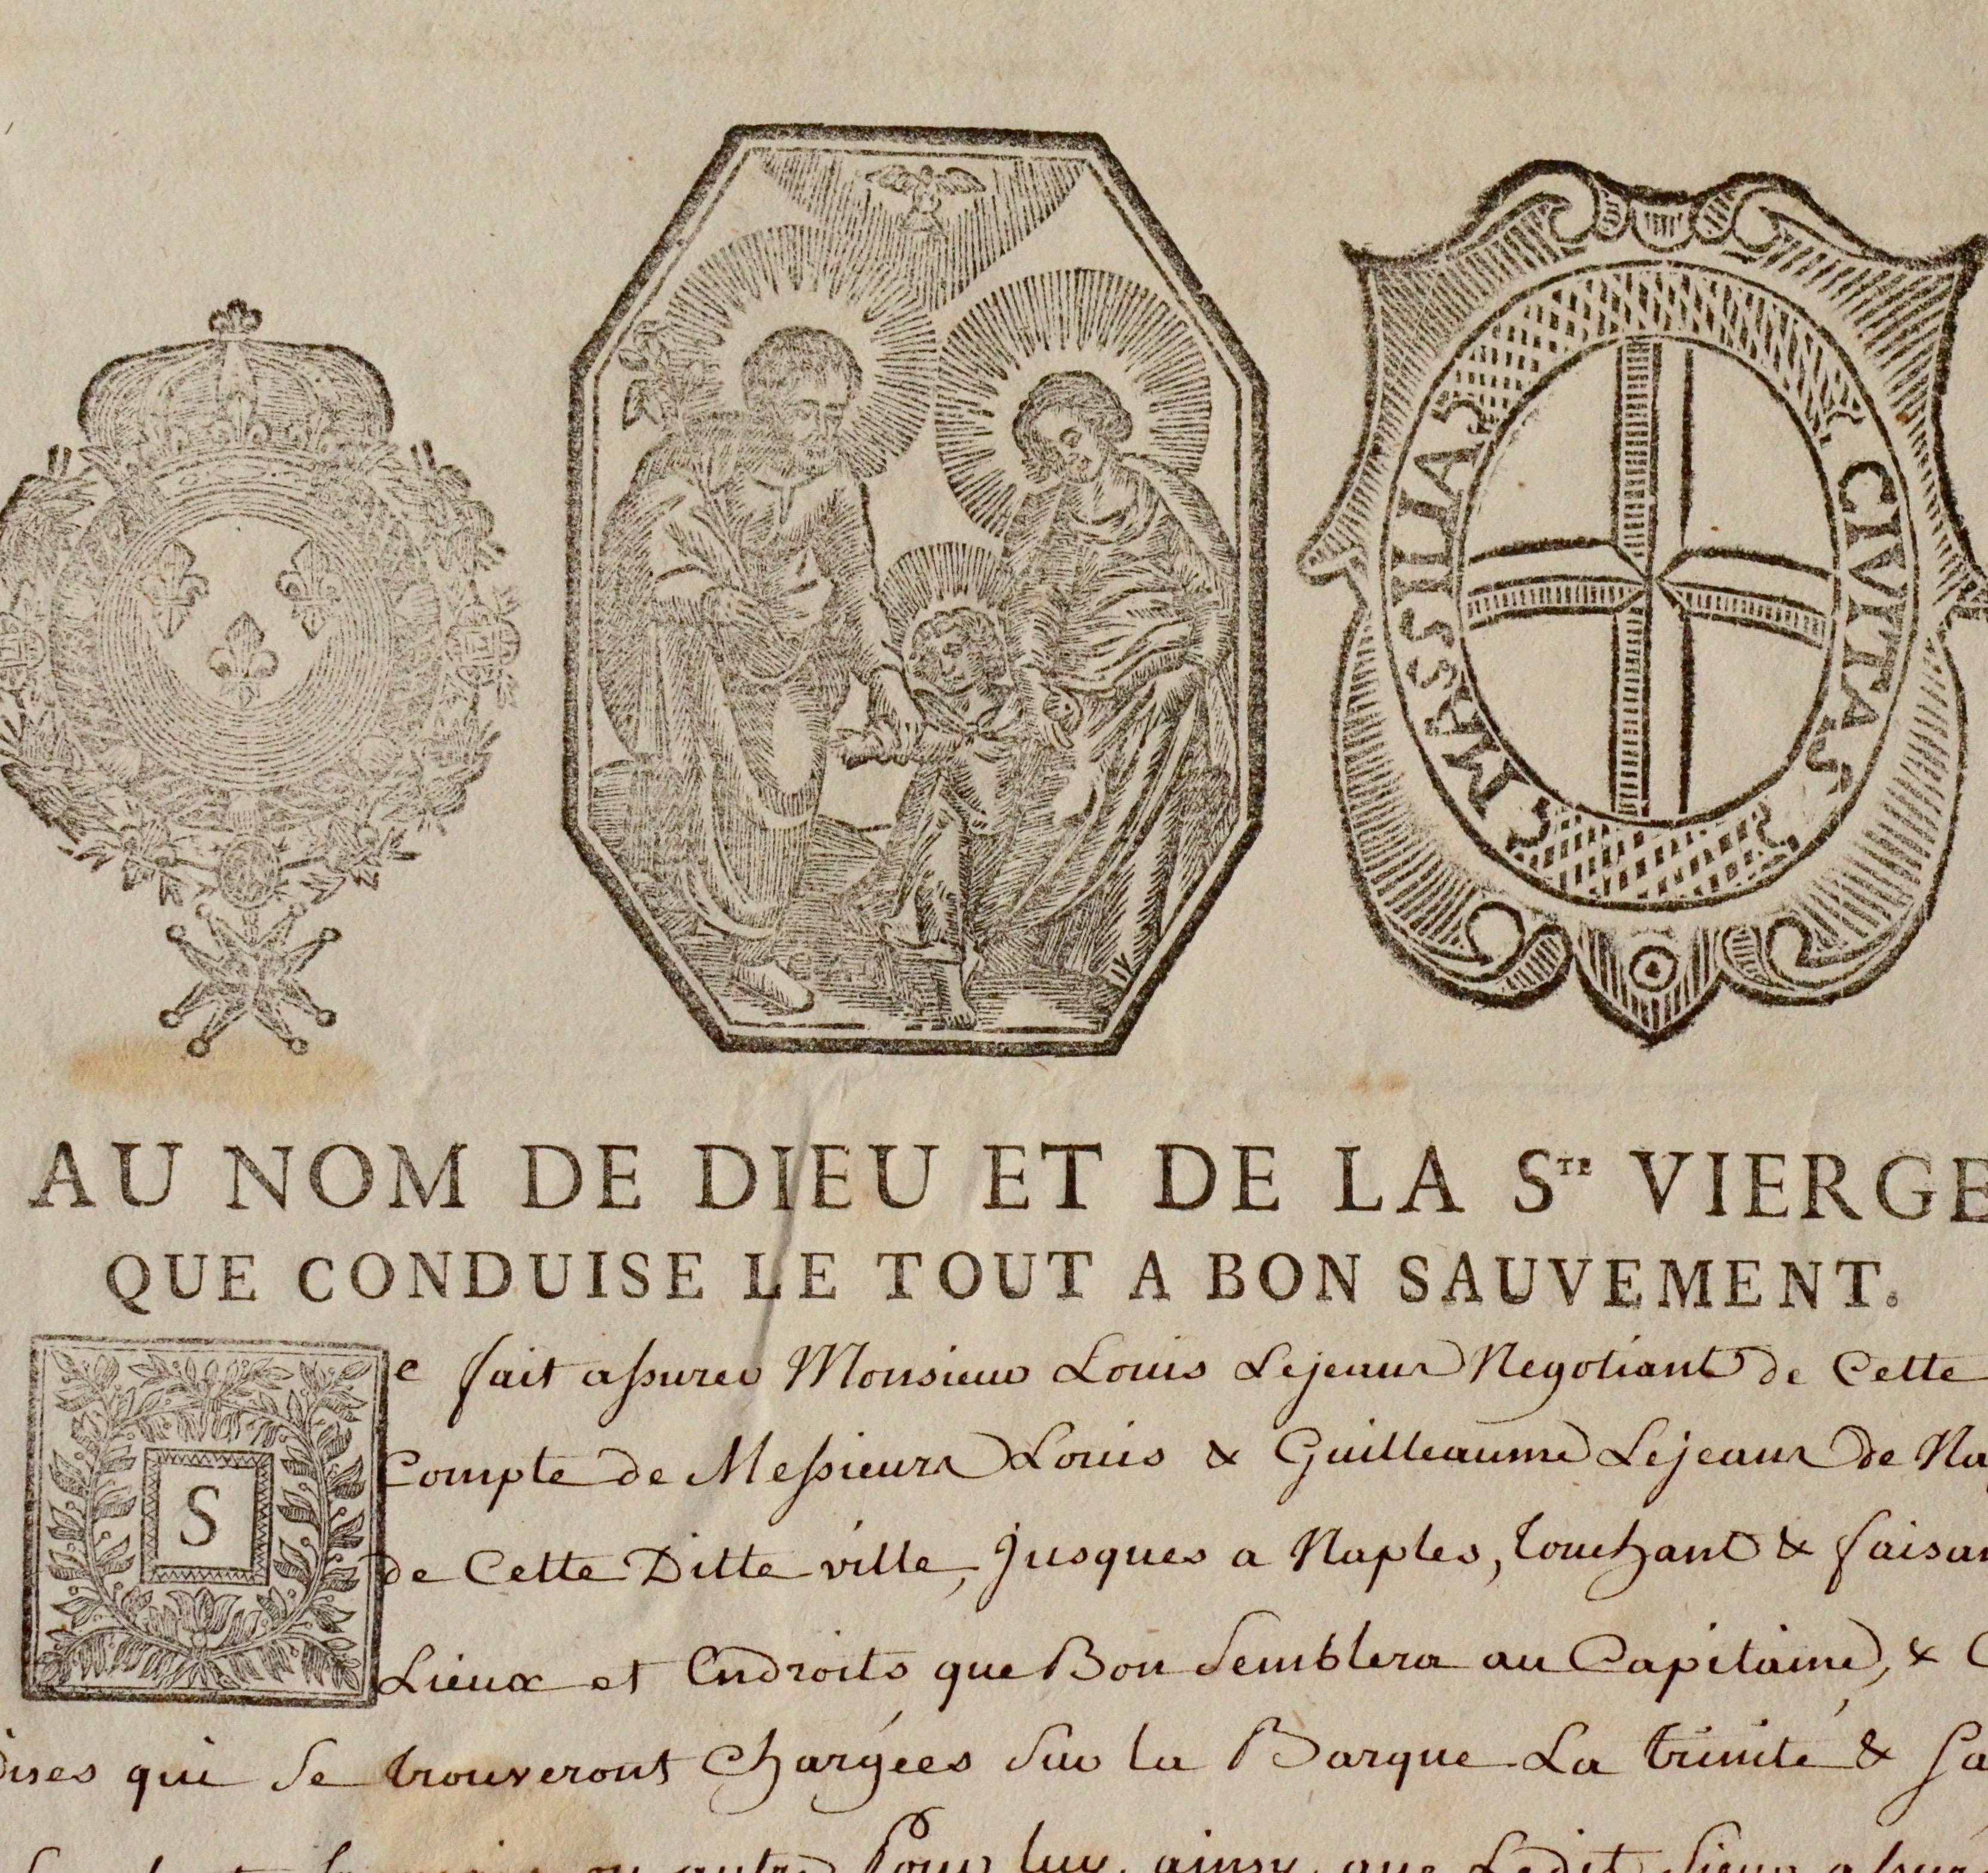 MASSILIA CIVITAS
AU NOM DE DIEU ET DE LA STE VIERGE
QUE CONDUISE LE TOUT A BON SAUVEMENT.
Se fait assurer Monsieur Louis Lejeans Negotiant de Cette
Compte de Messieurs Louis & Guilleaume Lejeans de
de Cette Ditte ville, Jusques a Naples, touchant &
Lieux et Endroits que Bon Semblera au Capitaine, &
qui Se trouveront Chargées Sur la Barque La trinité &
ou autre Pour luy, ainsy, que Ledit Sieur